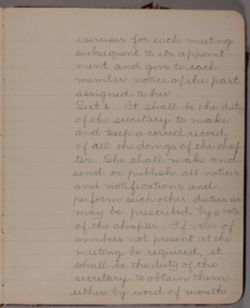 exercises for each meeting
subsequent to its appoint-
ment and give to each
member notice of the part
assigned to her
Sect 5. It shall be the duty
of the secretary to make
and keep a correct record
of all the doings of the chap-
ter. She shall make and
send or publish all notices
and notifications and
perform such other duties as
may be prescribed by a vote
of the chapter. If vote of
members not present at the
meeting be required, it
shall be the duty of the
secretary to obtain them
either by word of mouth